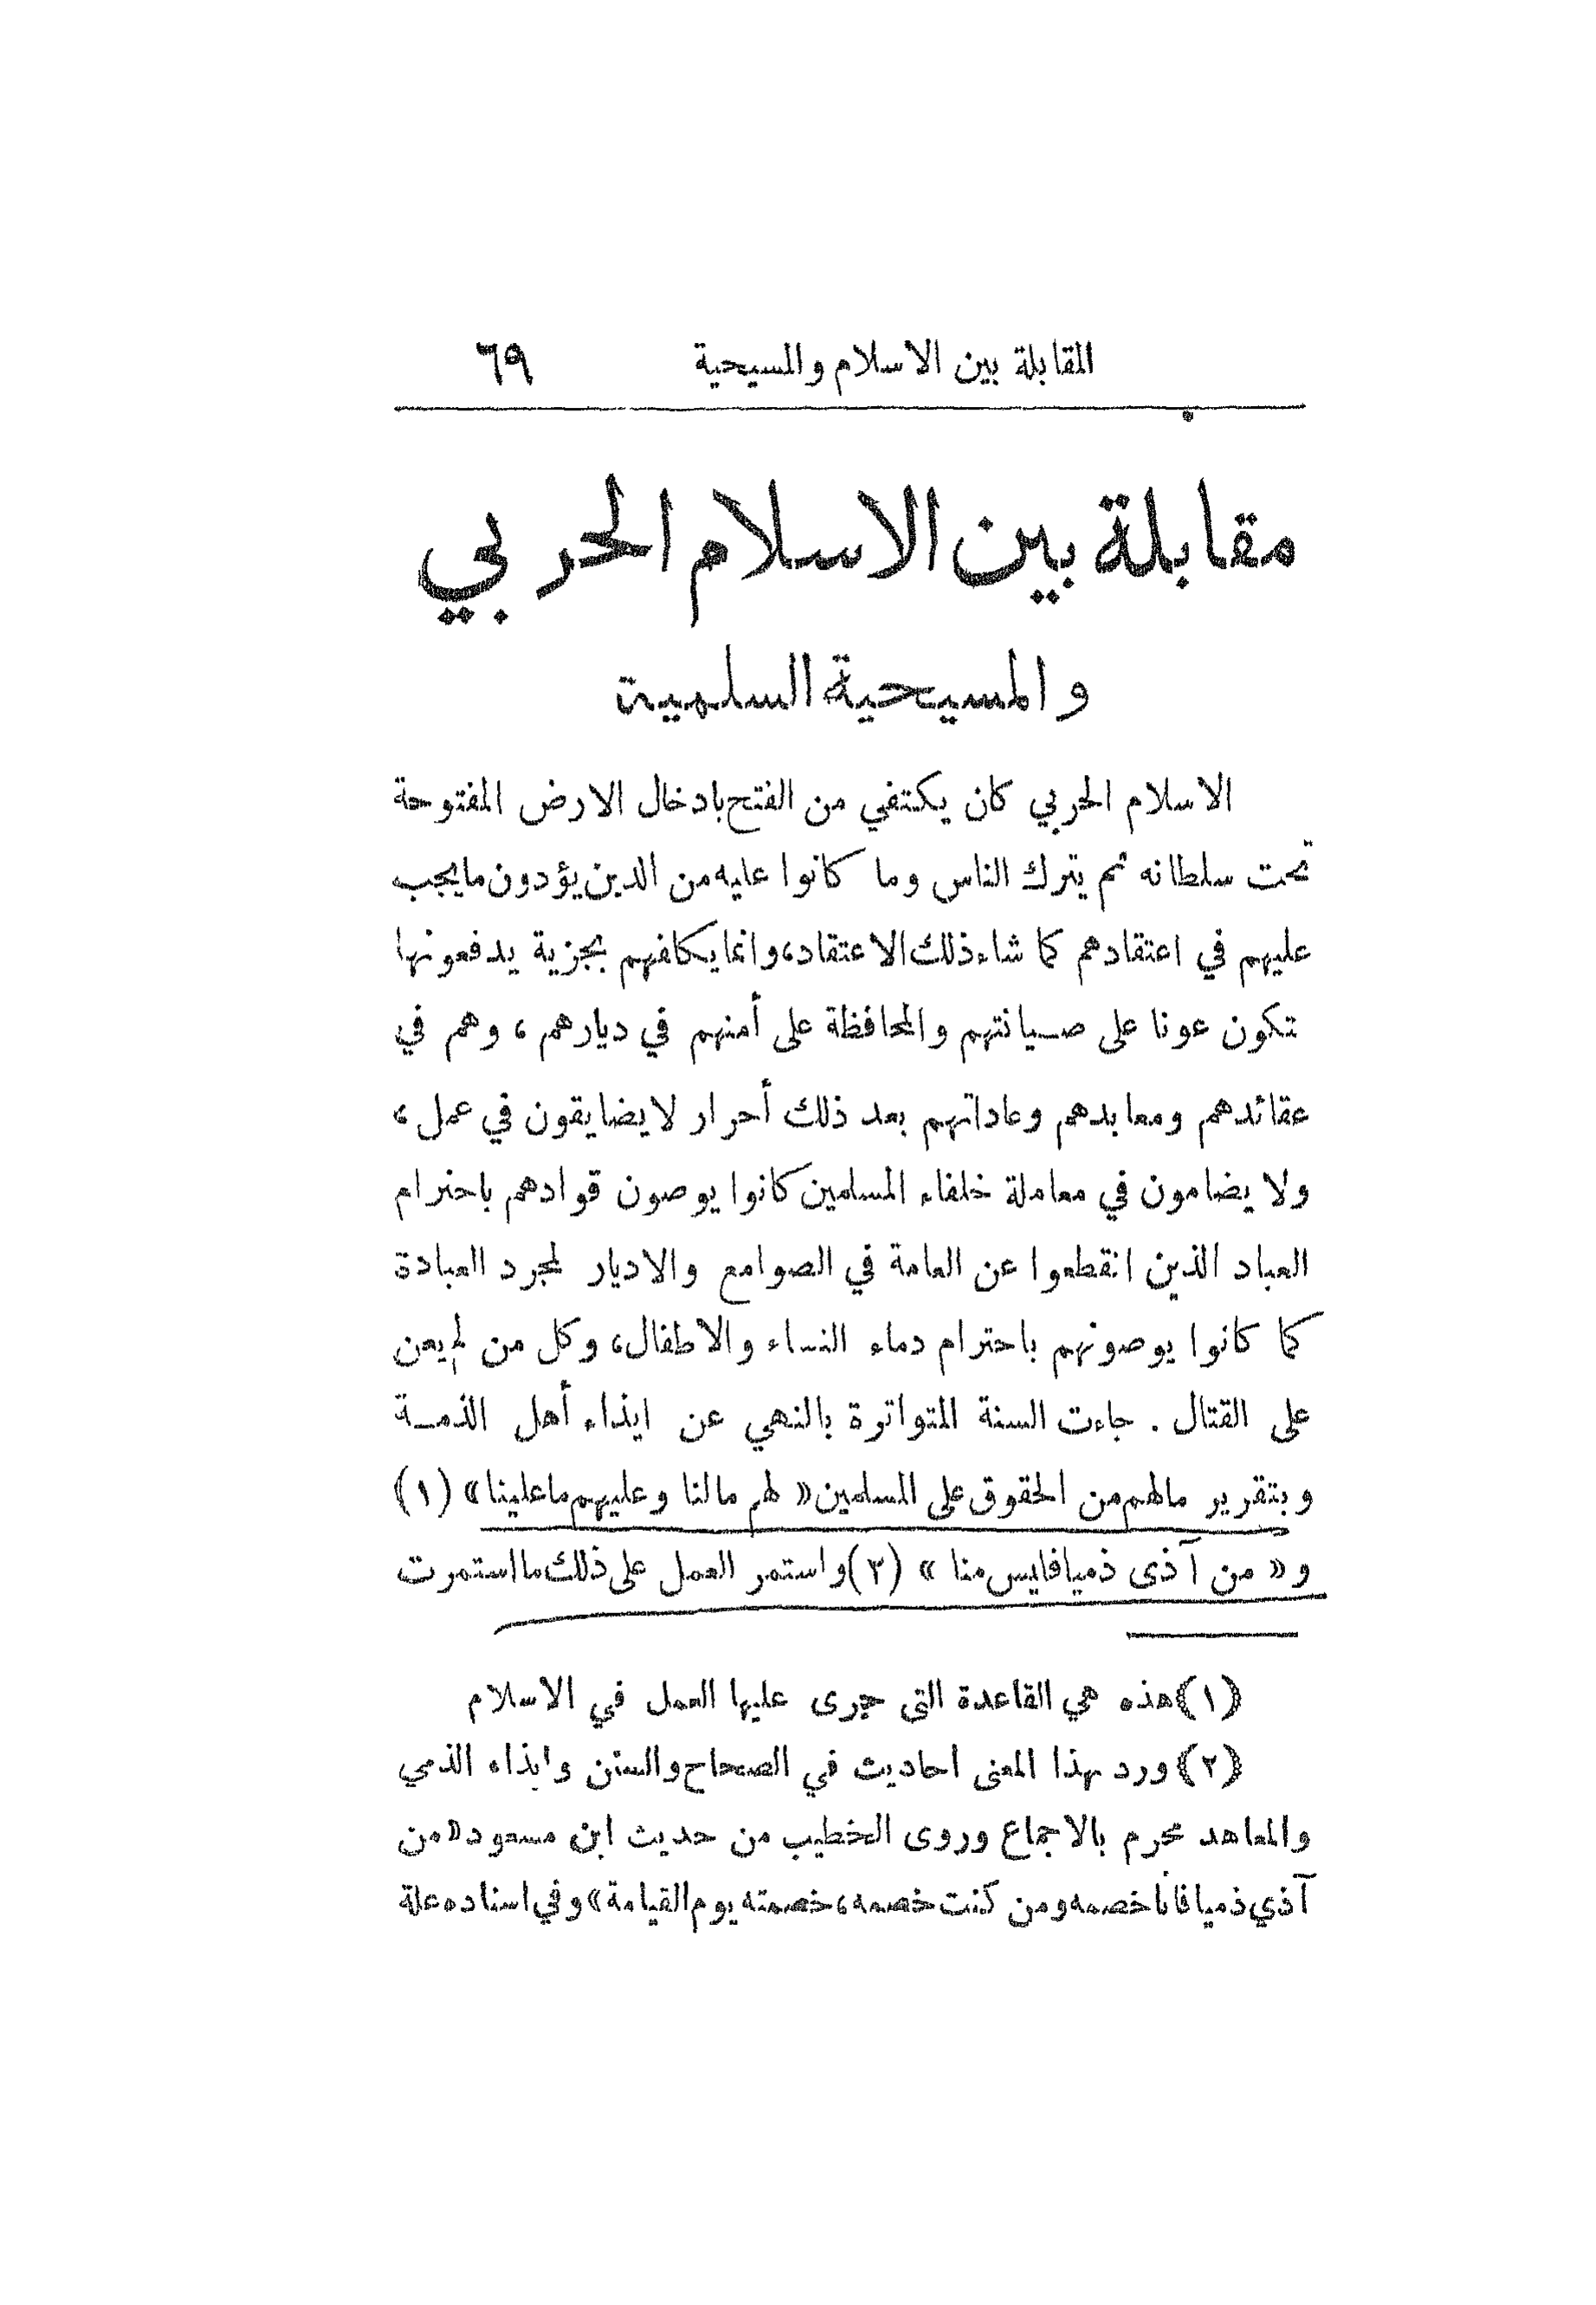 المقابلة بين الاسلام والمسيحية ٦٩
مقابلة بين الاسلام الحربي
والمسيحية السلمية
الاسلام الحربي كان يكتفي من الفتح بادخال الارض المفتوحة
تحت سلطانه ثم يترك الناس وما كانوا عليه من الدين يؤدون ما يجب
عليهم في اعتقادهم كما شاء ذلك الاعتقاد، وانما يكلفهم بجزية يدفعونها
تكون عونا على صيانتهم والمحافظة على أمنهم في ديارهم ، وهم في
عقائدهم ومعابدهم وعاداتهم بعد ذلك أحرار لا يضايقون في عمل ،
ولا يضامون في معاملة خلفاء المسلمين كانوا يوصون قوادهم باحترام
العباد الذين انقطعوا عن العامة في الصوامع والاديار لمجرد العبادة
كما كانوا يوصونهم باحترام دماء النساء والاطفال، وكل من لم يعن
على القتال . جاءت السنة المتواترة بالنهي عن ايذاء أهل الذمة
وبتقرير مالهم من الحقوق على المسلمين « لهم مالنا وعليهم ما علينا » (١)
و « من آذى ذميا فليس منا » (٢) واستمر العمل على ذلك ما استمرت
(١) هذه هي القاعدة التي جرى عليها العمل في الاسلام
(٢) ورد بهذا المعنى احاديث في الصحاح والسنن وايذاء الذمي
والمعاهد محرم بالاجماع وروى الخطيب من حديث ابن مسعود « من
آذي ذميا فانا خصمه ومن كنت خصمه، خصمته يوم القيامة » وفي اسناده علة